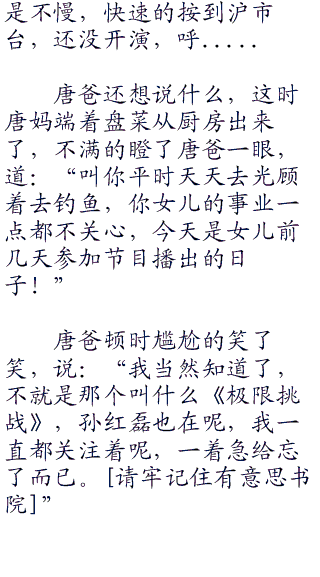 是不慢，快速的按到沪市
台，还没开演，呼.....
唐爸还想说什么，这时
唐妈端着盘菜从厨房出来
了，不满的瞪了唐爸一眼，
道：“叫你平时天天去光顾
着去钓鱼，你女儿的事业一
点都不关心，今天是女儿前
几天参加节目播出的日
子！”
唐爸顿时尴尬的笑了
笑，说：“我当然知道了，
不就是那个叫什么《极限挑
战》，孙红磊也在呢，我一
直都关注着呢，一着急给忘
了而已。[请牢记住有意思书
院]”